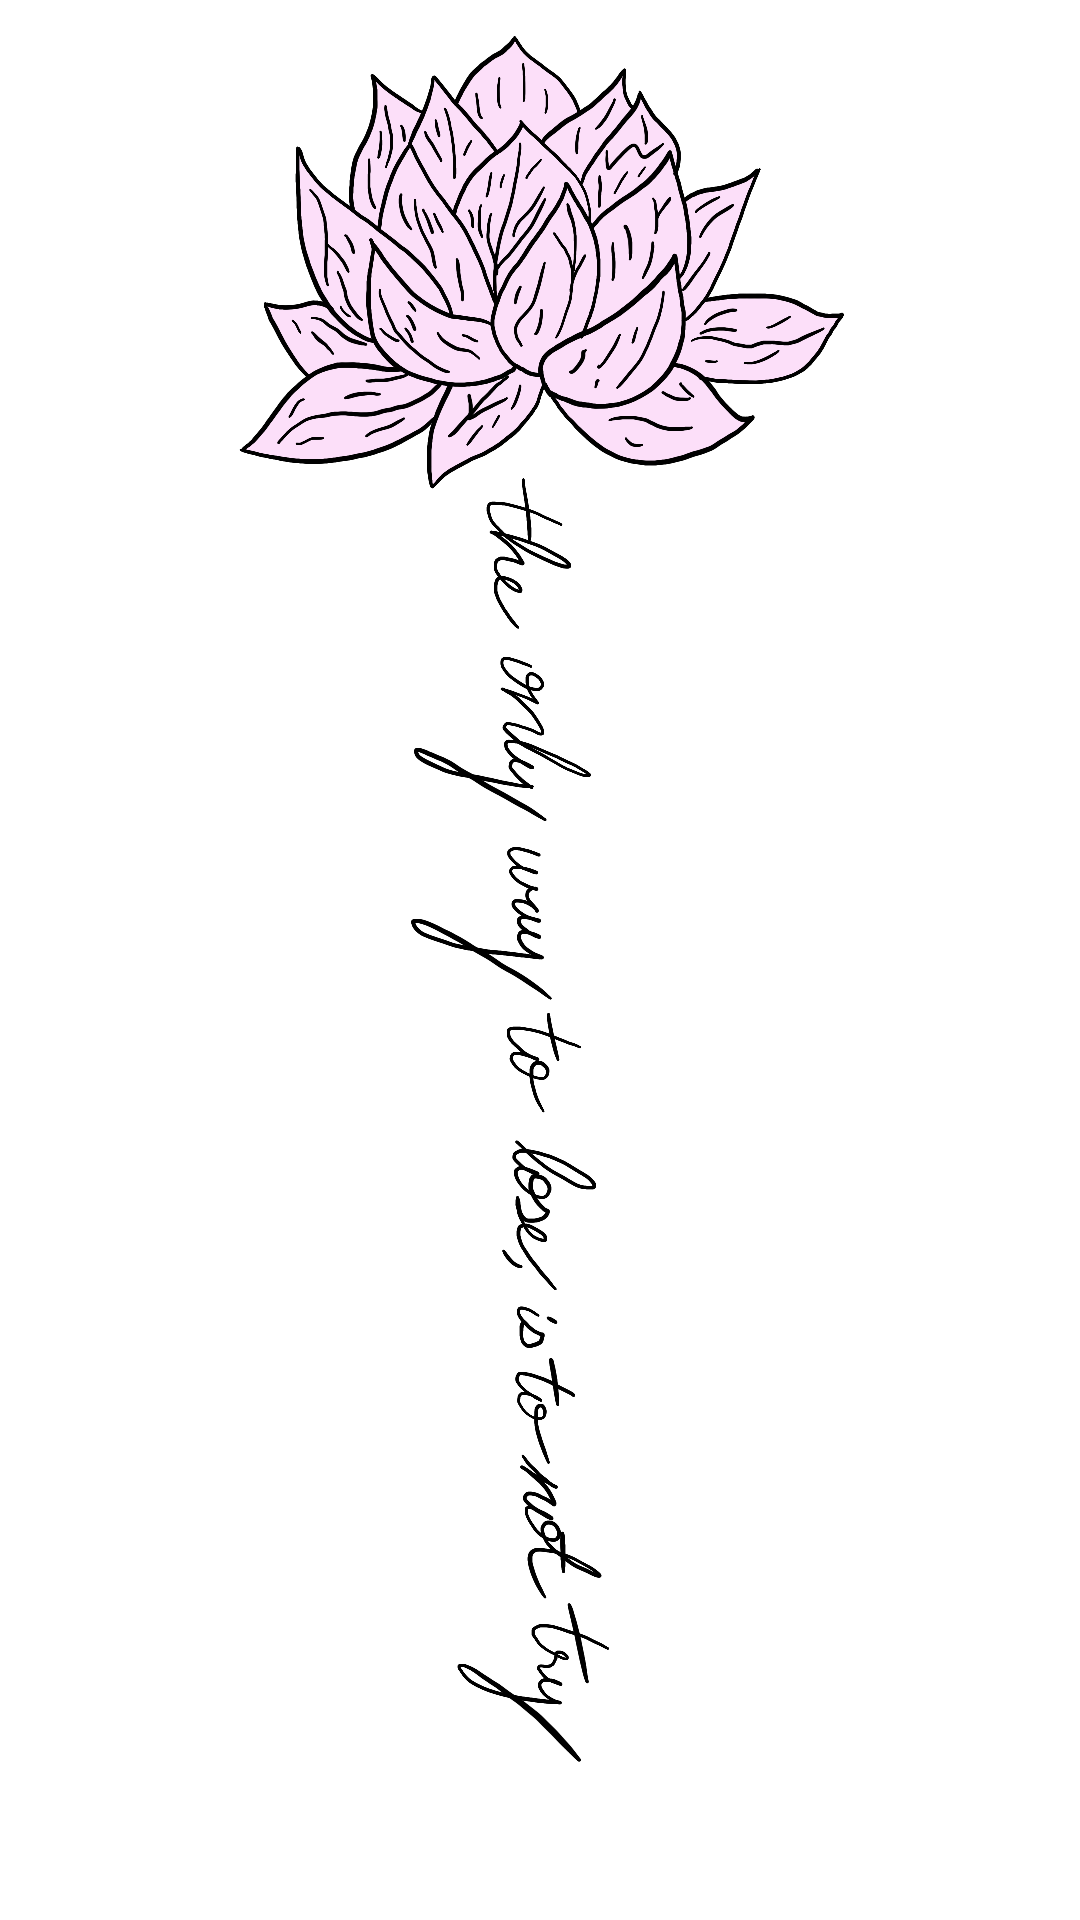 the only way to lose, is to not try